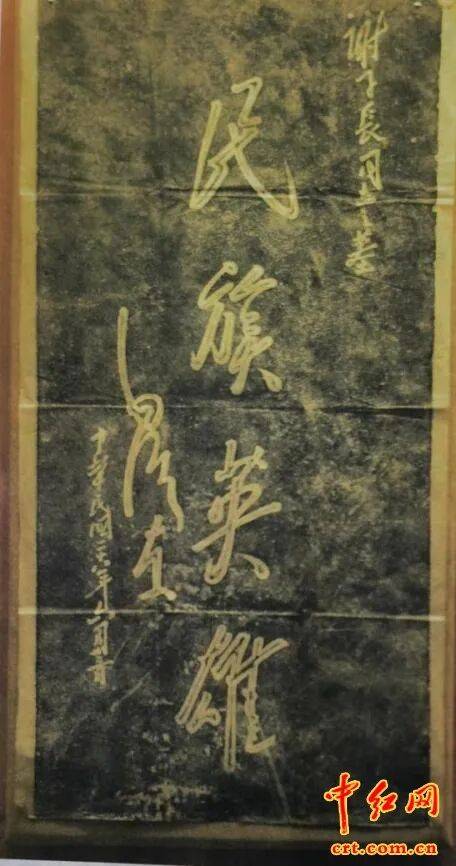 謝子長同志之墓
民族英雄
毛澤東
中華民國二八年
中红网
crt.com.cn